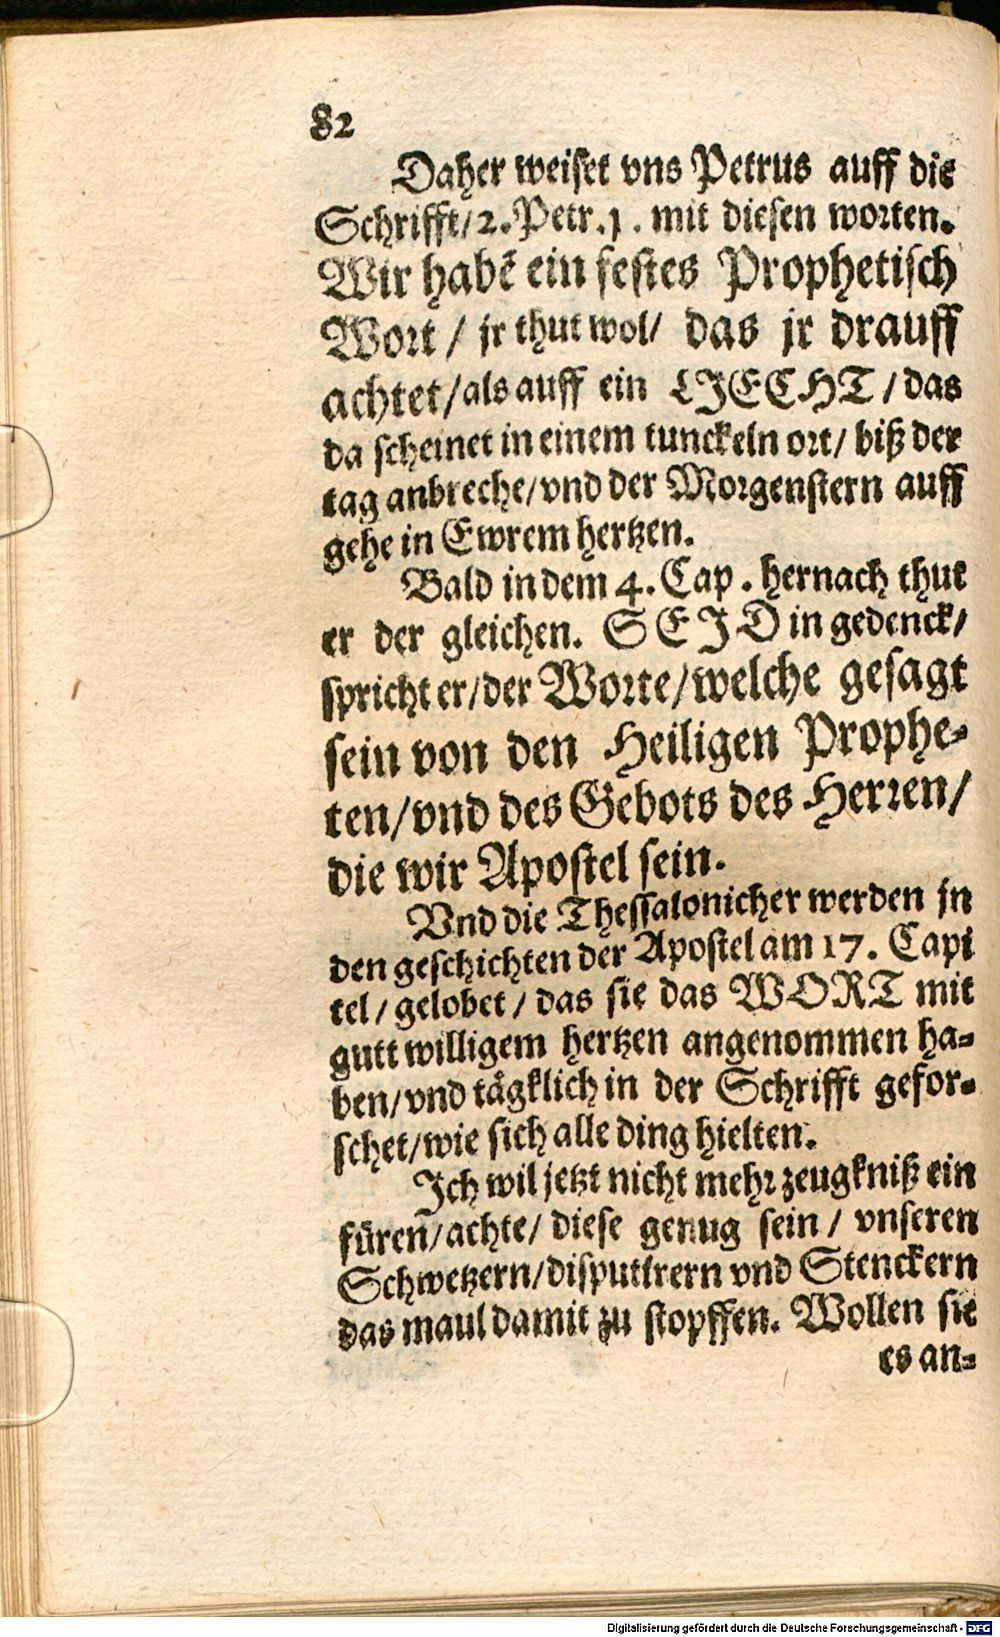 82
Daher weiset vns Petrus auff die
Schrifft/2. Petr.j. mit diesen worten.
Wir habē ein festes Prophetisch
Wort / jr thut wol/ das jr drauff
achtet/als auff ein LJECHT/das
da scheinet in einem tunckeln ort/ biß der
tag anbreche/vnd der Morgenstern auff
gehe in Ewrem hertzen.
Bald in dem 4. Cap. hernach thut
er der gleichen. SEJD in gedenck/
spricht er/der Worte/welche gesagt
sein von den Heiligen Prophe-
ten/vnd des Gebots des Herren/
die wir Apostel sein.
Vnd die Thessalonicher werden jn
den geschichten der Apostel am 17. Capi
tel/gelobet/das sie das WORT mit
gutt willigem hertzen angenommen ha-
ben/vnd tägklich in der Schrifft gefor-
schet/wie sich alle ding hielten.
Jch wil jetzt nicht mehr zeugkniß ein
füren/achte/ diese genug sein/ vnseren
Schwetzern/disputirern vnd Stenckern
das maul damit zu stopffen. Wollen sie
es an-
Digitalisierung gefördert durch die Deutsche Forschungsgemeinschaft - DFG